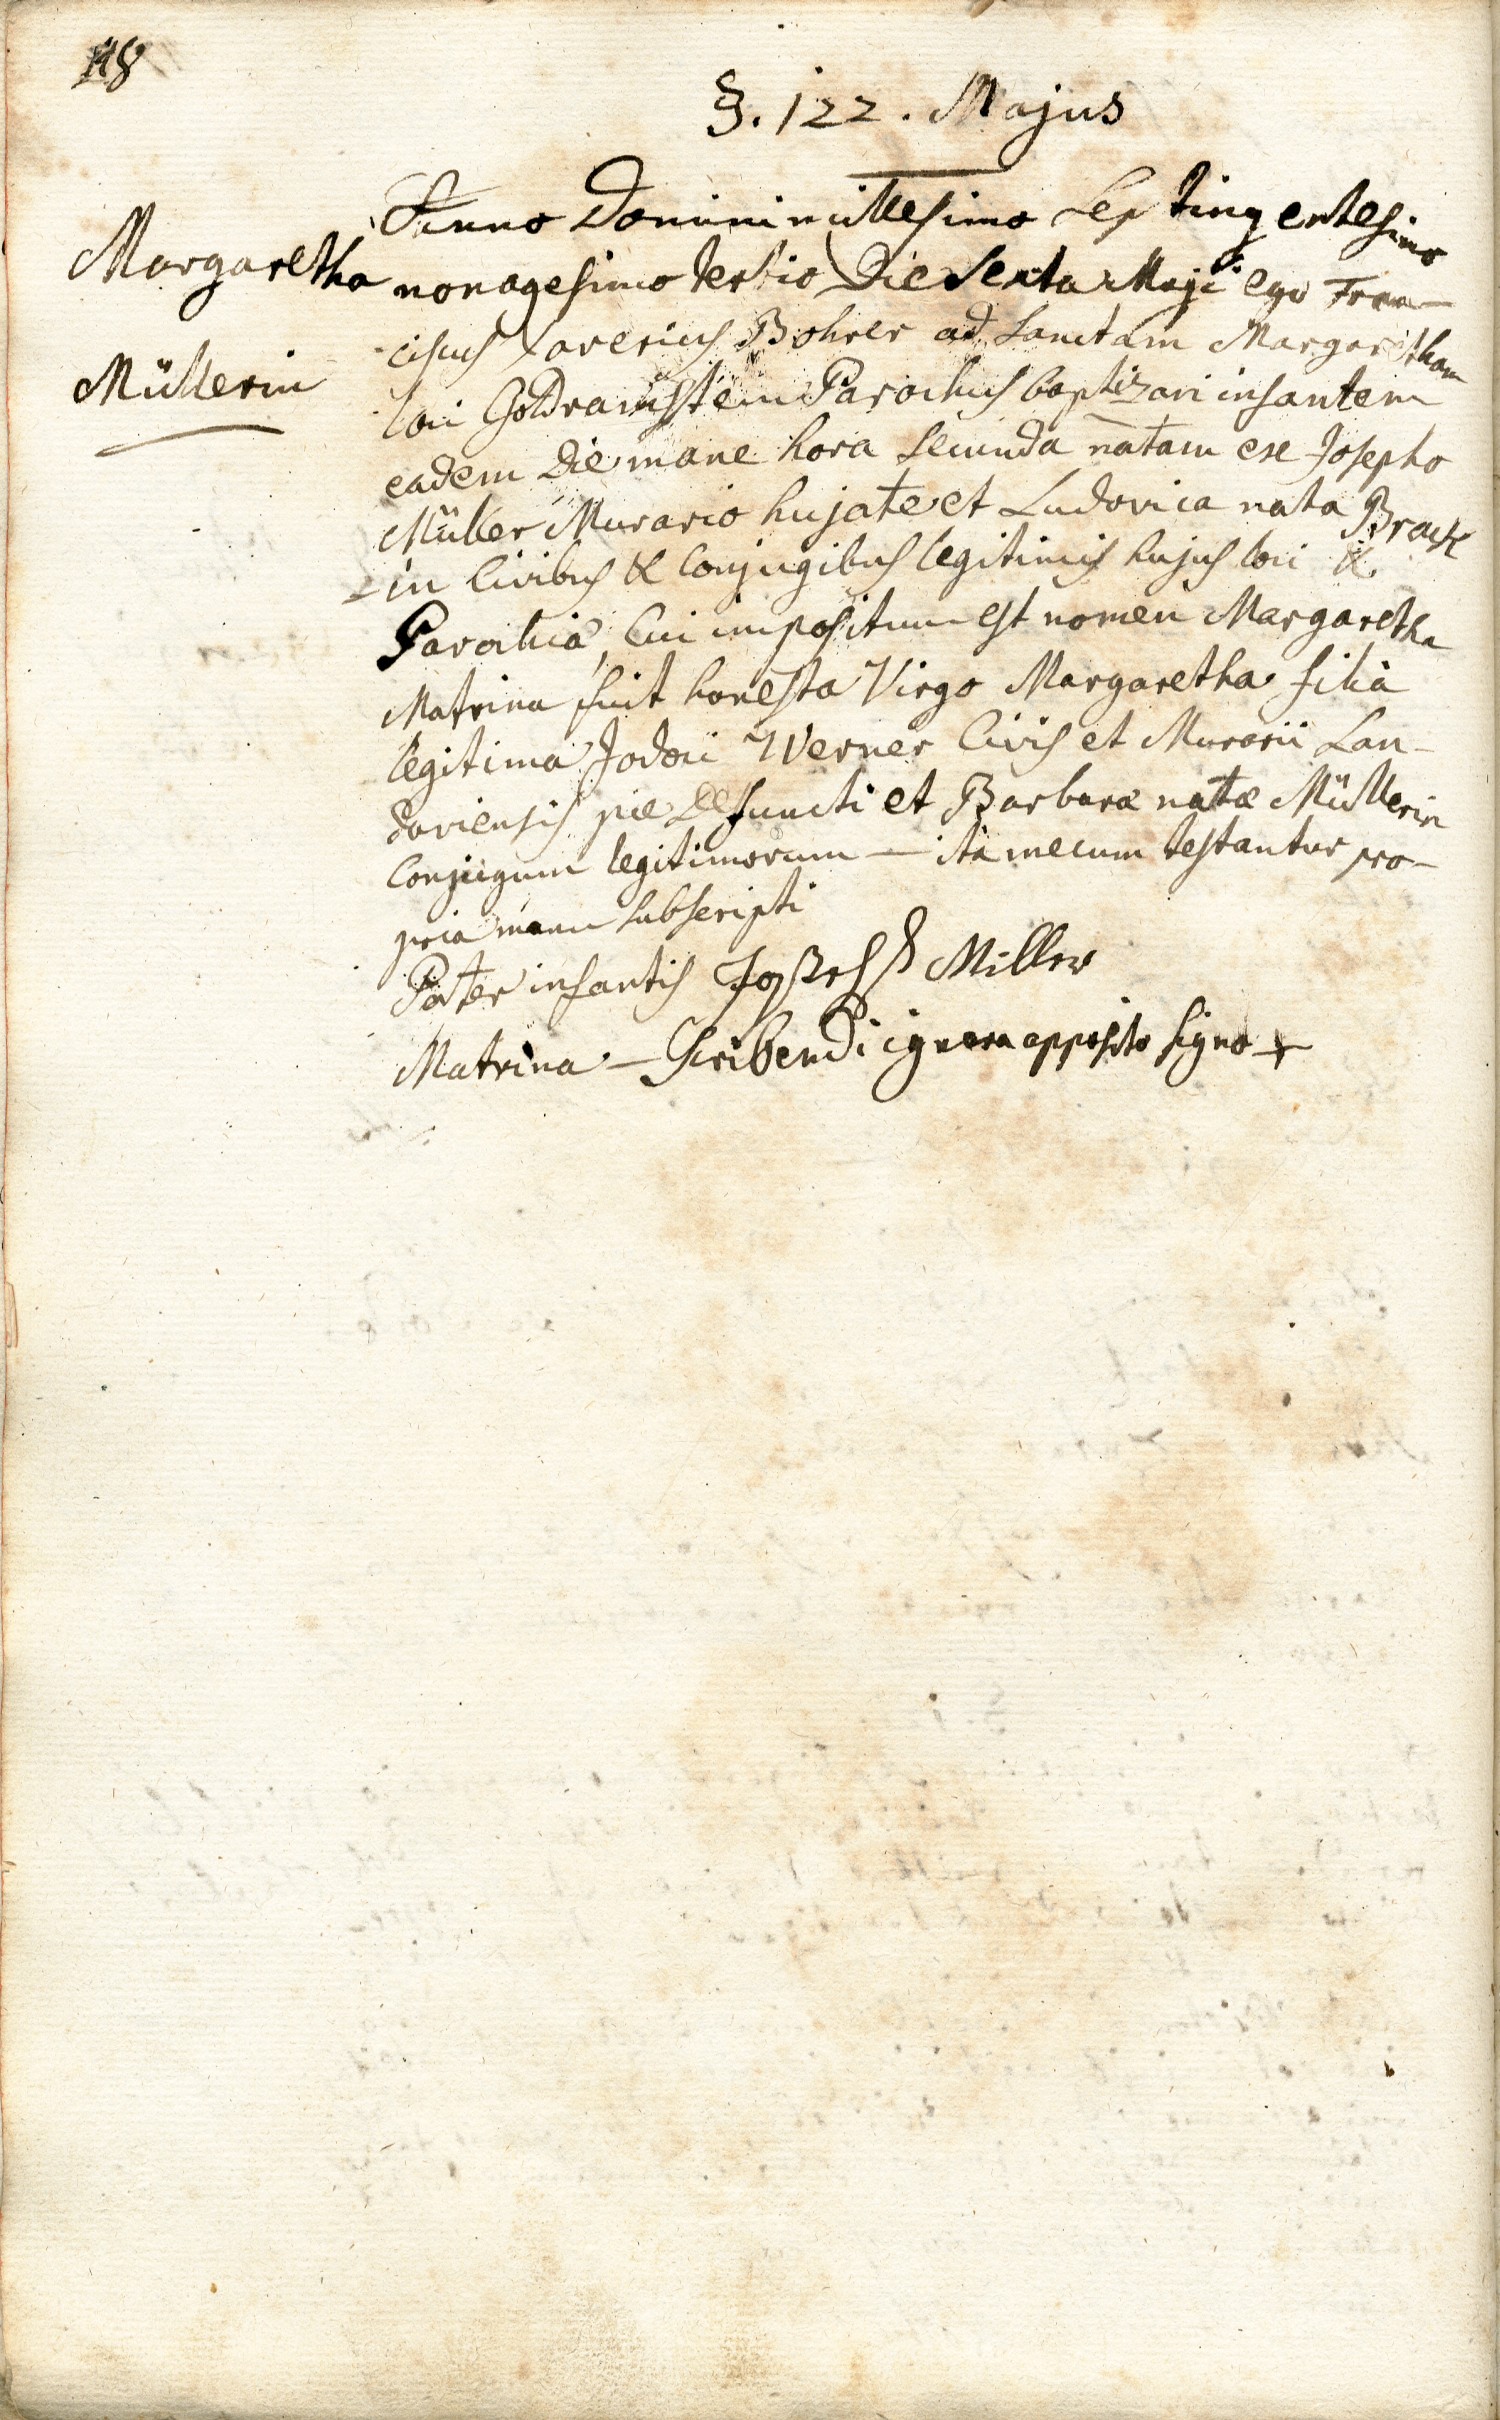 118
§. 122. Majus
Anno Domini millesimo septingentesimo
Margaretha nonagesimo tertio Die Sexta Maji ego Fran-
ciscus Xaverius Bohrer ad Sanctam Margaretham
Müllerin
loci Godramstein Parochus baptizavi infantem
eadem Die mane hora secunda natam ex Josepho
Müller Murario hujate et Ludovica nata Brack
in Civibus & Conjugibus legitimis hujus loci &
Parochia, Cui impositum est nomen Margaretha
Matrina fuit honesta Virgo Margaretha filia
legitima Jodoci Werner Civis et Murarii Lan-
daviensis pie Defuncti et Barbaræ natæ Müllerin
Conjugum legitimorum — ita mecum testantur pro-
pria manu subscripti
Pater infantis Joseph Miller
Matrina — Scribendi ignara apposito signo +